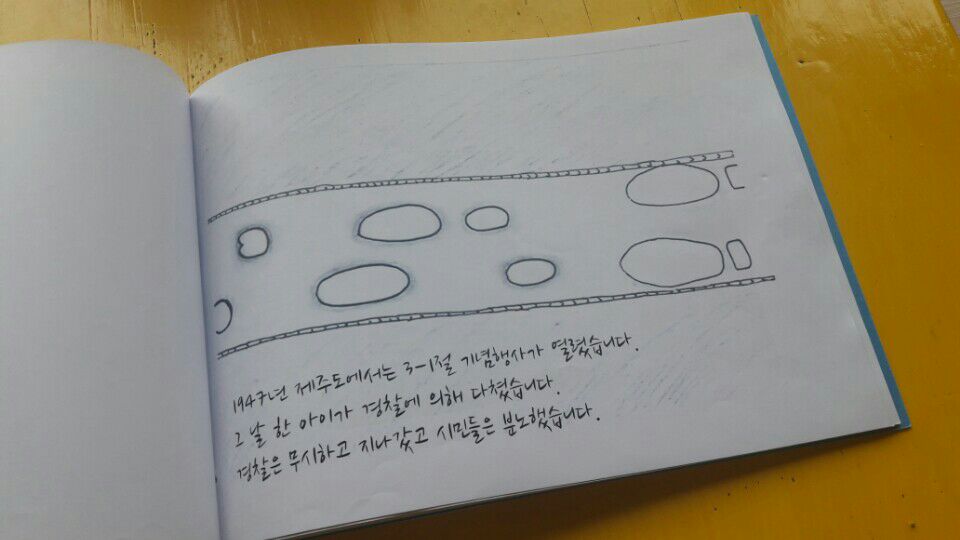 1947년 제주도에서는 3-1절 기념행사가 열렸습니다.
그 날 한 아이가 경찰에 의해 다쳤습니다.
경찰은 무시하고 지나갔고 시민들은 분노했습니다.